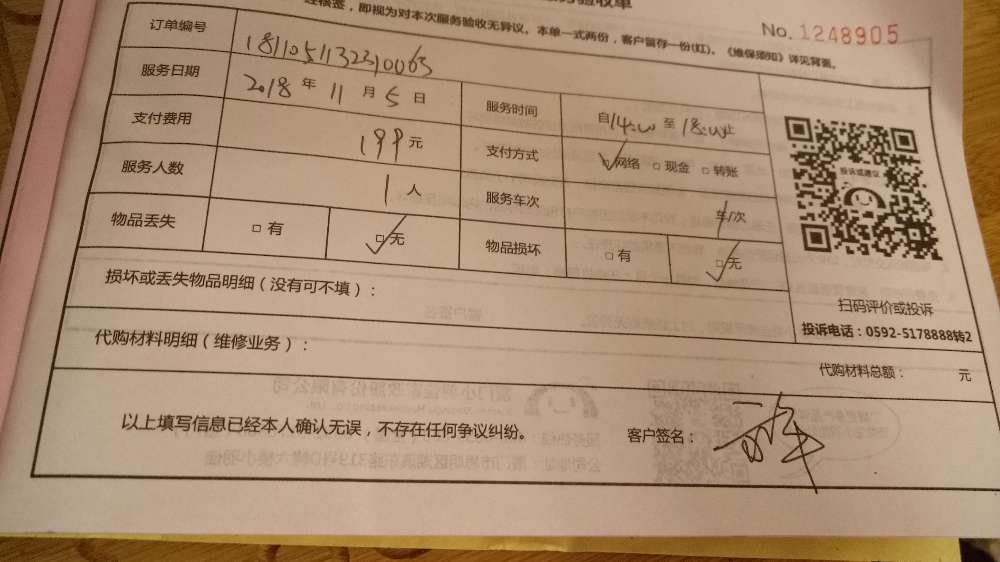 验收单
经核签，即视为对本次服务验收无异议。本单一式两份，客户留存一份(红)。《维保须知》详见背面。
No. 1248905
订单编号 1811051132310063
服务日期 2018 年 11 月 5 日 服务时间 自14:00 至 18:00止
支付费用 199 元 支付方式 □网络 □ 现金 □ 转账
服务人数 1 人 服务车次 / 车/次
物品丢失 □ 有 □ 无 物品损坏 □ 有 □ 无
投诉或建议
扫码评价或投诉
投诉电话：0592-5178888转2
损坏或丢失物品明细（没有可不填）：
代购材料明细（维修业务）：
代购材料总额： 元
以上填写信息已经本人确认无误，不存在任何争议纠纷。
客户签名：